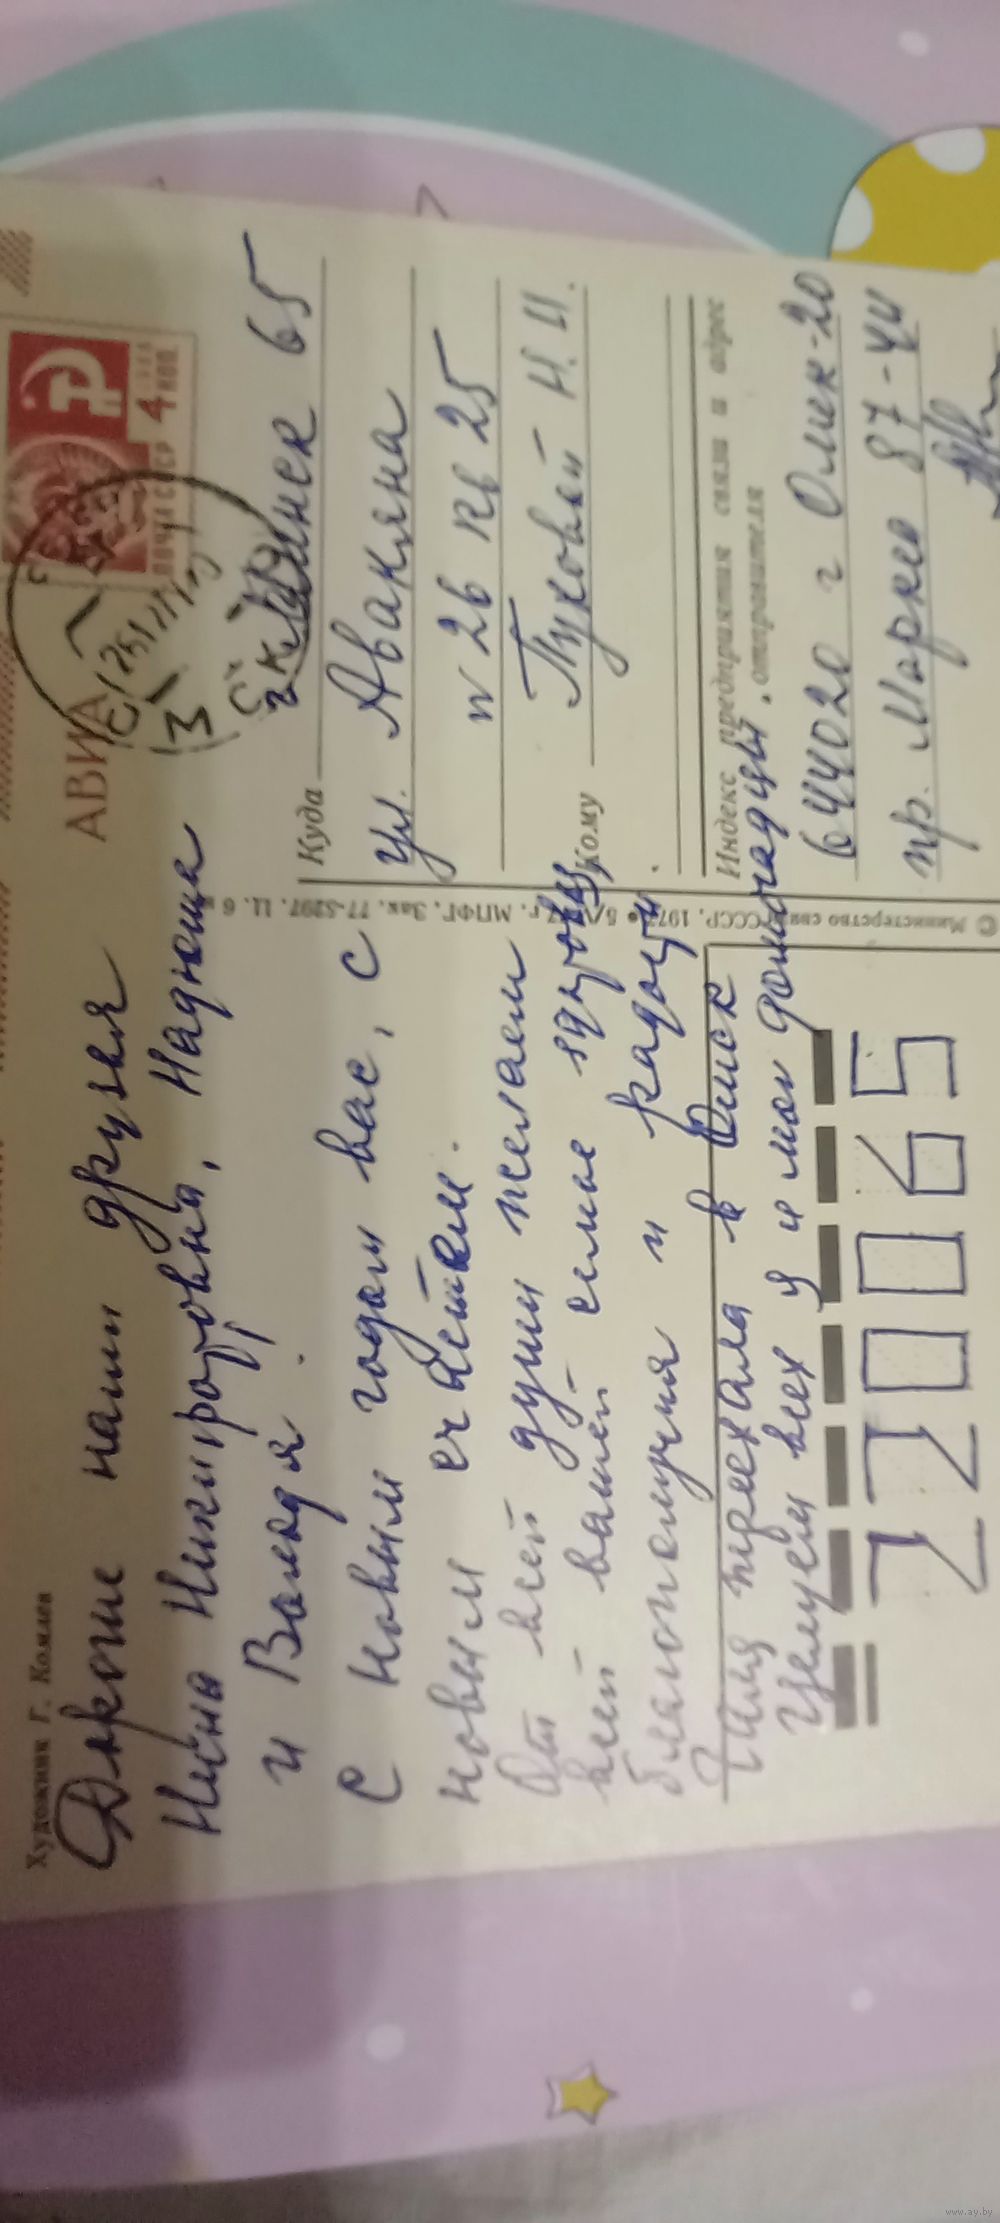 Художник Г. Комлев
Дорогие наши друзья
Нина Никифоровна, Надюша
и Володя.
С новым годом вас, с
новым счастьем.
От всей души желаем
всей вашей семье здоровья,
благополучия и радости.
переехала в Омск
Целуем всех и мои домочадцы.
220065
© Министерство связи СССР, 197 МПФГ. Зак. 77-5297. 11. 6 к.
АВИА
ПОЧТА СССР 4 КОП
Куда г. Минск 65
ул. Авакяна
26 кв 25
Кому Пуховой Н. И.
Индекс предприятия связи и адрес
отправителя
644020 г Омск-20
пр. Маркса 87-44
www.ay.by